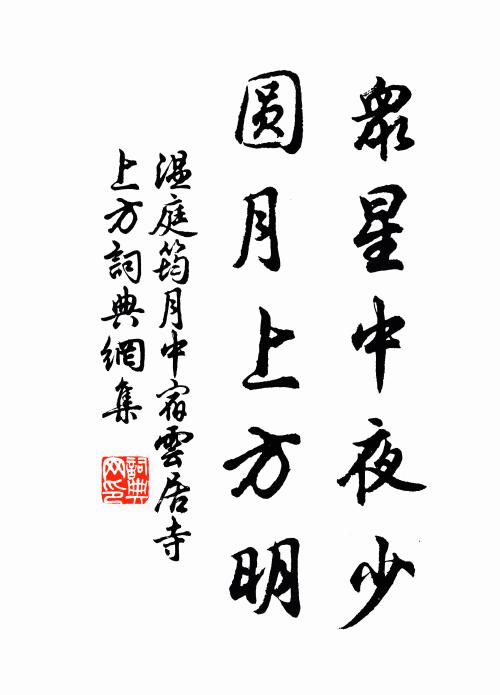 眾星中夜少
圆月上方明
温庭筠月中宿雲居寺
上方詞典網集
詞典
网印